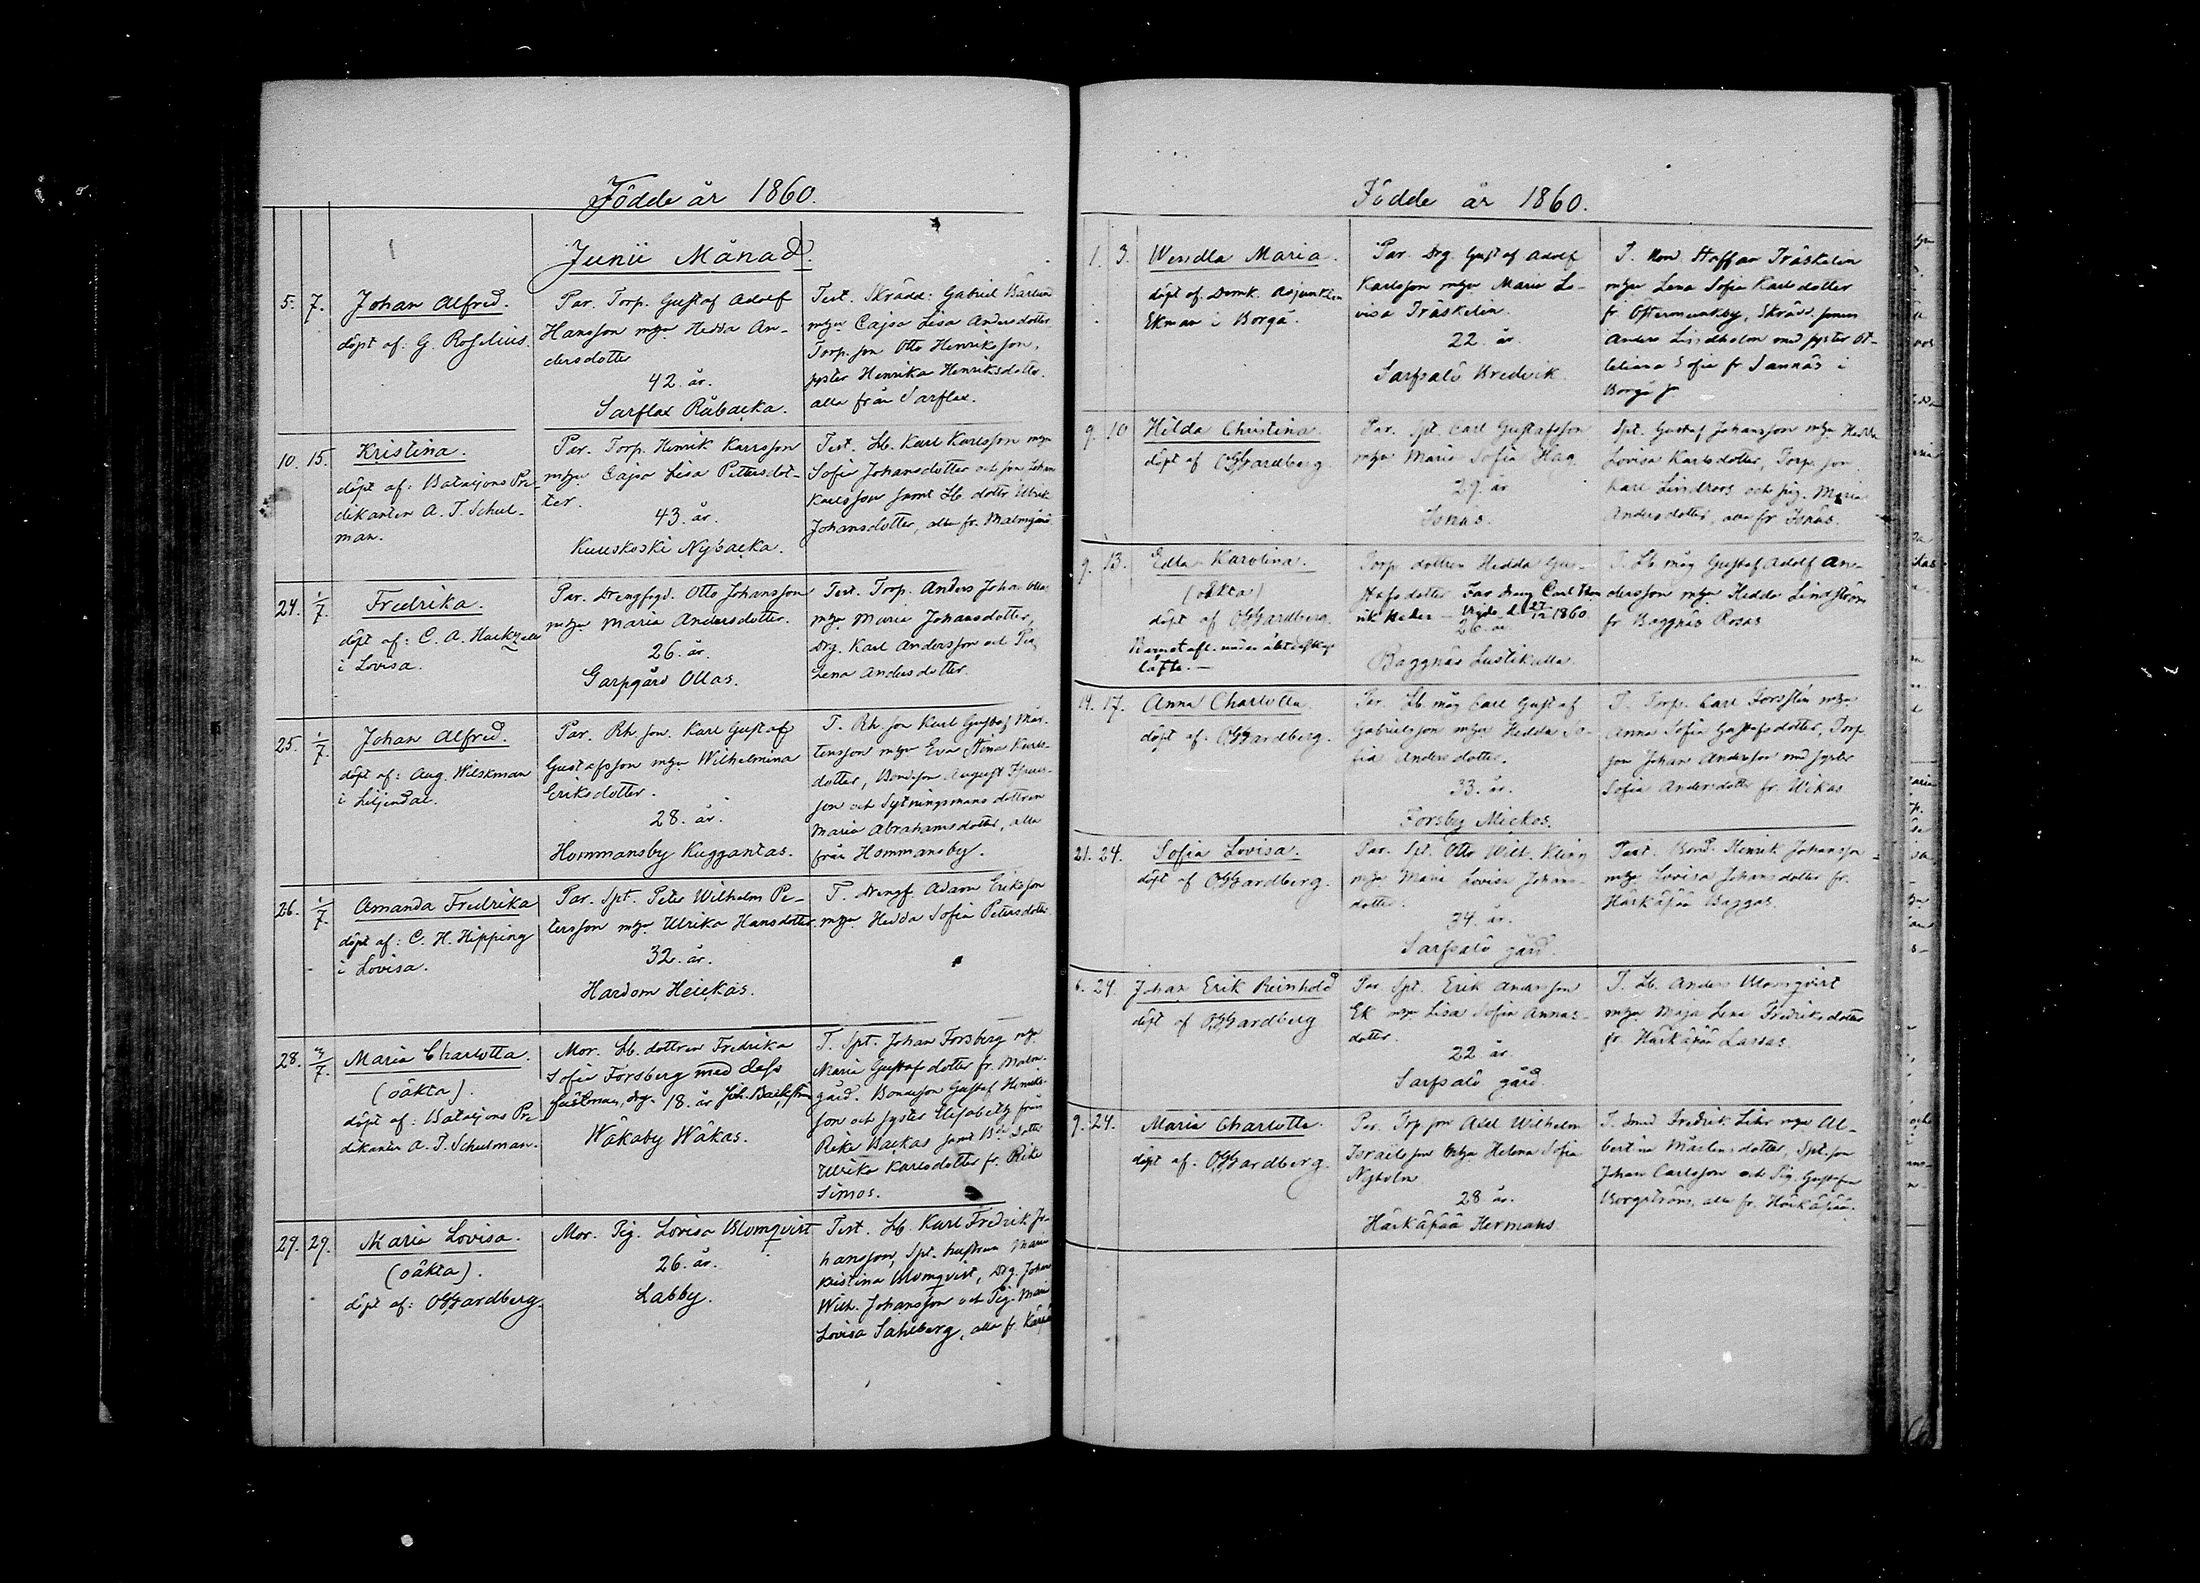 Födde år 1860.
Junii Månad.
5. 7. Johan Alfred.
döpt af: G. Roselius.
Par. Torp. Gustaf Adolf
Hansson mhu Hedda An-
dersdotter
42. år.
Sarflax Råbacka.
Test. Skrädd: Gabriel
mhu Cajsa Lisa Andersdotter
Torp. son Otto Henriksson,
syster Henrika Henriksdotter.
alla från Sarflax.
10. 15. Kristina.
döpt af: Bataljons Pre-
dikanten A. T. Schul-
man.
Par. Torp. Henrik Karrsson
mhu Cajsa Lisa Pettersdot-
ter.
43. år.
Kuuskoski Nybacka.
Test. Lb. Karl Karlsson mhu
Sofia Johansdotter och son Johan
Karlsson samt Lb. dottr Ulrika
Johansdotter, alla fr. Malmgård.
24. 1/7. Fredrika.
döpt af: C. A.
i Lovisa.
Par. Drengfogd. Otto Johansson
mhu Maria Andersdotter.
26. år.
Garpgård Ollas.
Test. Torp. Anders Johan
mhu Maria Johansdotter,
Drg. Karl Andersson och Pig
Lena Andersdotter.
25. 1/7. Johan Alfred.
döpt af: Aug. Wilskman
i Liljendal.
Par. Rh. son. Karl Gustaf
Gustafsson mhu Wilhelmina
Eriksdotter.
28. år.
Hommansby Kuggantas.
T. Rh. son Karl Gustaf Mår-
tensson mhu Eva Stina Karls-
dotter, Bondeson August
son och Sytningsmans dottren
Maria Abrahamsdotter, alla
från Hommansby.
26. 1/7. Amanda Fredrika
döpt af: C. H. Hipping
i Lovisa.
Par. Spt. Peter Wilhelm Pe-
tersson mhu Ulrika Hansdotter.
32. år.
Hardom Heickas.
T. Drengf. Adam Eriksson
mhu Hedda Sofia Petersdotter.
28. 3/7. Maria Charlotta.
(oäkta).
döpt af: Bataljons Pre-
dikanten A. T. Schulman.
Mor. Lb. dottren Fredrika
Sofia Forsberg med dess
fästman, drg. 18. år Joh. Backström
Wåkaby Wåkas.
T. Spt. Johan Forsberg mhu
Maria Gustafsdotter fr. Malm-
gård. Bondeson Gustaf Henriks-
son och syster Elisabeth från
Rike Backas samt Bde dotter
Ulrika Karlsdotter fr. Rike
Simos.
29. 29. Maria Lovisa.
(oäkta).
döpt af: OHGardberg.
Mor. Pig. Lovisa Blomqvist
26. år.
Labby.
Test. Lb. Karl Fredrik Jo-
hansson, Spt. hustrun Maria
Kristina Blomqvist, Drg. Johan
Wilh. Johansson och Pig. Maria
Lovisa Sahlberg, alla fr.
Födde år 1860.
1. 3. Wendla Maria.
döpt af. Domk. Adjunkten
Ekman i Borgå.
Par. Drg. Gustaf Adolf
Karlsson mhu Maria Lo-
visa Träskelin.
22. år.
Sarfsalö Bredvik.
T. Bond. Staffan Träskelin
mhu Lena Sofia Karlsdotter
fr. Östermunkby, Skrädd. sonen
Anders Lindholm med syster Ot-
teliana Sofia fr. Sannäs i
Borgå
9. 10 Hilda Christina.
döpt af OHGardberg.
Par. Spt. Carl Gustafsson
mhu Maria Sofia Hag.
29. år
Isnäs.
Spt. Gustaf Johansson mhu Hedda
Lovisa Karlsdotter, Torp. son
Karl Lindroos och pig. Maria
Andersdotter, alla fr Isnäs.
9. 13. Edla Karolina.
(oäkta)
döpt af OHGardberg.
Barnet afl. under äktenskaps
löfte.
Torp. dottren Hedda Gu-
stafsdotter Far dreng Carl Hen
rik Vigde d. 27/12 1860
26. år.
Baggnäs Lustikulla.
T. Lb. måg Gustaf Adolf An-
dersson mhu Hedda Lindström
fr Baggnäs Rosas
14. 17. Anna Charlotta.
döpt af. OHGardberg.
Par. Lb. måg Carl Gustaf
Gabrielsson mhu Hedda So-
fia Andersdotter.
33. år.
Forsby Mickos.
T. Torp. Carl Forsstén mhu
Anna Sofia Gustafsdotter, Torp.
son Johan Andersson med syster
Sofia Andersdotter fr.
21. 24. Sofia Lovisa.
döpt af OHGardberg.
Par. Spt. Otto Wilh. Kling
mhu Maria Lovisa Johans-
dotter.
34. år.
Sarfsalö gård.
Test. Bond. Henrik Johansson
mhu Lovisa Johansdotter fr.
Härkäpää Baggas.
6. 24. Johan Erik Reinhold
döpt af OHGardberg
Par. Spt. Erik Andersson
Ek mhu Lisa Sofia Annas-
dotter.
22 år.
Sarfsalö gård.
T. Lb. Anders Blomqvist
mhu Maja Lena Fredriksdotter
fr. Härkäpää Lassas.
9. 24. Maria Charlotta.
döpt af. OHGardberg.
Par. Torp son Axel Wilhelm
Israelsson mhu Helena Sofia
Nyholm
28 år.
Härkäpää Hermans
T. Smed Fredrik mhu Al-
bertina Mårtensdotter, Spt. son
Johan Carlsson och Pig. Gustafva
Borgström, alla fr. Härkäpää.